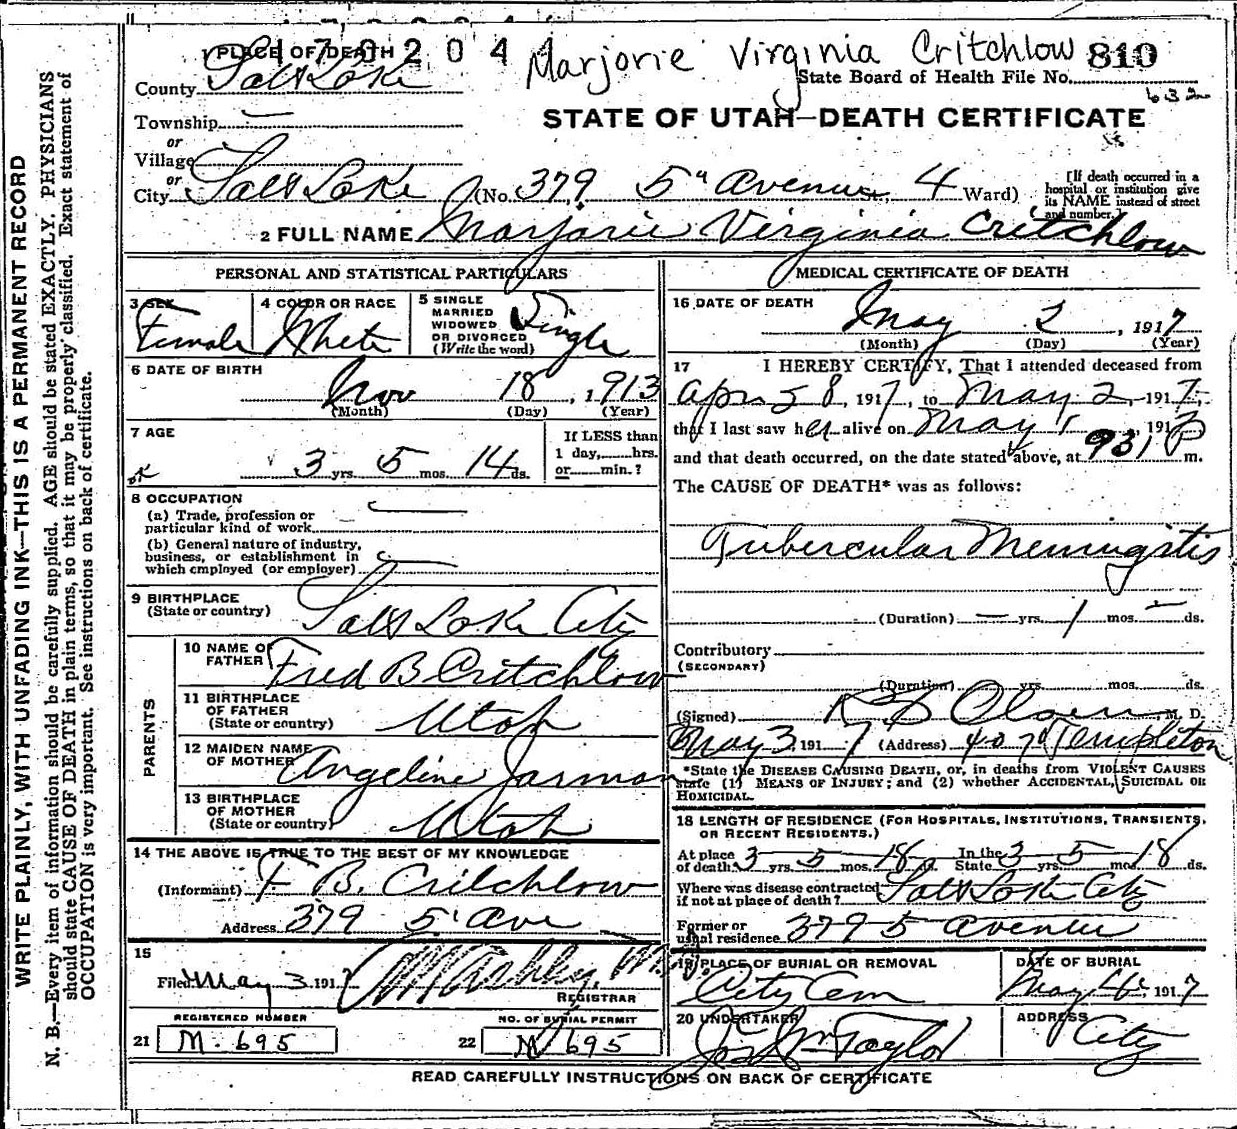 170204
Marjorie Virginia Critchlow
810
1 PLACE OF DEATH
County Salt Lake
State Board of Health File No.
632
STATE OF UTAH—DEATH CERTIFICATE
Township
or
Village
or
City Salt Lake (No. 379 5" Avenue St., 4 Ward)
[If death occurred in a
hospital or institution give
its NAME instead of street
and number.]
2 FULL NAME Marjorie Virginia Critchlow
PERSONAL AND STATISTICAL PARTICULARS
3 SEX
Female
4 COLOR OR RACE
White
5 SINGLE
MARRIED
WIDOWED
OR DIVORCED
(Write the word)
Single
6 DATE OF BIRTH
Nov 18, 1913
(Month) (Day) (Year)
7 AGE
3 yrs. 5 mos. 14 ds.
If LESS than
1 day, hrs.
or min.?
8 OCCUPATION
(a) Trade, profession or
particular kind of work
(b) General nature of industry,
business, or establishment in
which employed (or employer)
9 BIRTHPLACE
(State or country)
Salt Lake City
PARENTS
10 NAME OF
FATHER
Fred B Critchlow
11 BIRTHPLACE
OF FATHER
(State or country)
Utah
12 MAIDEN NAME
OF MOTHER
Angeline Jarman
13 BIRTHPLACE
OF MOTHER
(State or country)
Utah
14 THE ABOVE IS TRUE TO THE BEST OF MY KNOWLEDGE
(Informant) F. B. Critchlow
Address 379 5' Ave
15
Filed May 3 1917
REGISTRAR
REGISTERED NUMBER
21 M. 695
NO. OF BURIAL PERMIT
22 M 695
MEDICAL CERTIFICATE OF DEATH
16 DATE OF DEATH
May 2, 1917
(Month) (Day) (Year)
17 I HEREBY CERTIFY, That I attended deceased from
1917, to May 2, 1917,
that I last saw her alive on May 1, 191
and that death occurred, on the date stated above, at 931 P m.
The CAUSE OF DEATH* was as follows:
Tubercular Meningitis
(Duration) — yrs. 1 mos. — ds.
Contributory
(SECONDARY)
(Duration) yrs. mos. ds.
(Signed) Olsen, M. D.
May 3, 1917 (Address) 407 Templeton
*State the DISEASE CAUSING DEATH, or, in deaths from VIOLENT CAUSES
state (1) MEANS OF INJURY; and (2) whether ACCIDENTAL, SUICIDAL OR
HOMICIDAL.
18 LENGTH OF RESIDENCE (FOR HOSPITALS, INSTITUTIONS, TRANSIENTS,
OR RECENT RESIDENTS.)
At place
of death 3 yrs. 5 mos. 18 ds. In the
State 3 yrs. 5 mos. 18 ds.
Where was disease contracted
if not at place of death? Salt Lake City
Former or
usual residence 379 5 Avenue
19 PLACE OF BURIAL OR REMOVAL
City Cem
DATE OF BURIAL
May 4, 1917
20 UNDERTAKER
Jos Wm Taylor
ADDRESS
City
READ CAREFULLY INSTRUCTIONS ON BACK OF CERTIFICATE
WRITE PLAINLY, WITH UNFADING INK—THIS IS A PERMANENT RECORD
N. B.—Every item of information should be carefully supplied. AGE should be stated EXACTLY. PHYSICIANS
should state CAUSE OF DEATH in plain terms, so that it may be properly classified. Exact statement of
OCCUPATION is very important. See instructions on back of certificate.